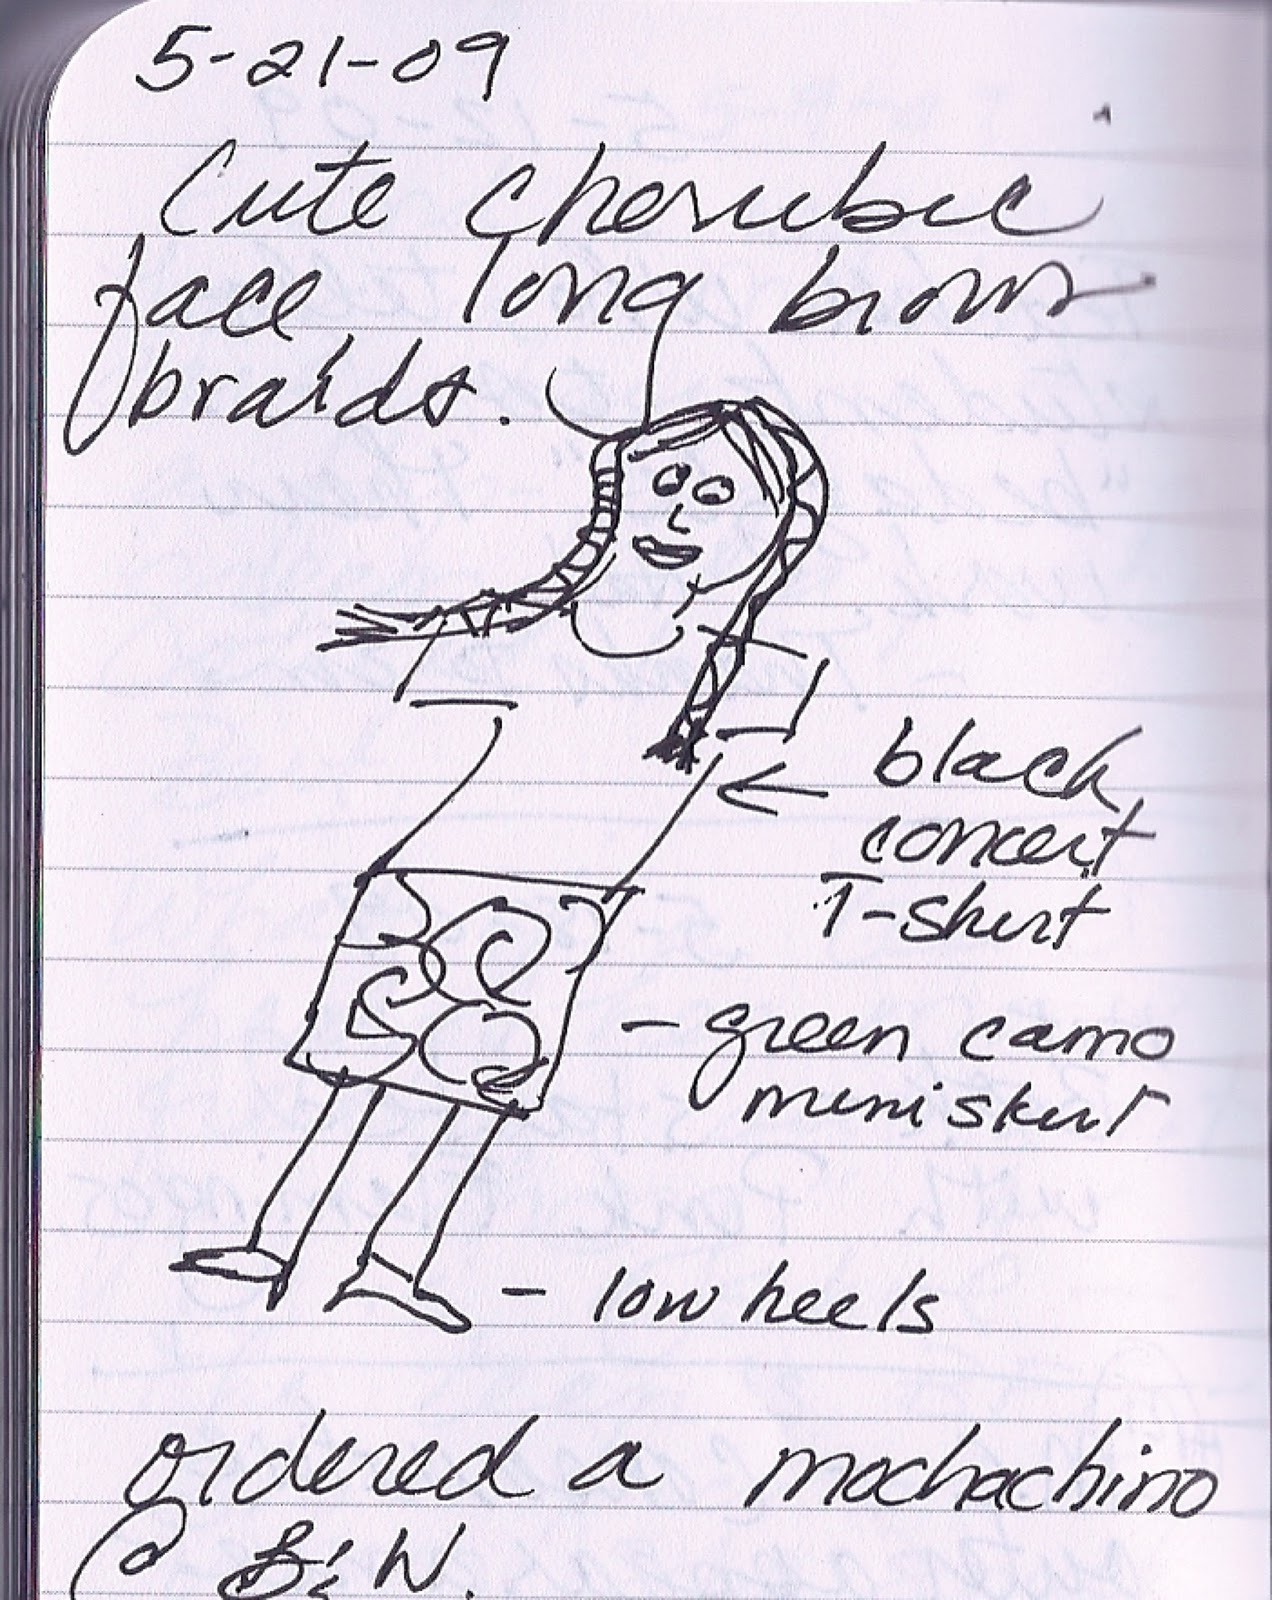 5-21-09
Cute cherubic
face, long brown
braids.
black
concert
T-shirt
- green camo
miniskirt
- low heels
ordered a mochachino
@ B & W.